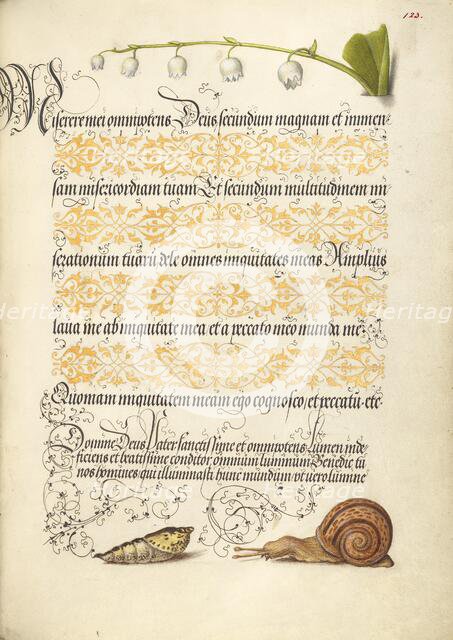 123.
Miserere mei omnipotens Deus secundum magnam et immen-
sam misericordiam tuam Et secundum multitudinem mi
serationum tuarũ dele omnes iniquitates meas Amplius
laua me ab iniquitate mea et a peccato meo munda me
Quoniam iniquitatem meam ego cognosco, et peccatũ etc
Domine Deus Pater sanctissime et omnipotens Lumen inde-
ficiens et beatissime conditor omnium luminum Benedic tu
nos homines qui illuminasti hunc mundum vt verolumine